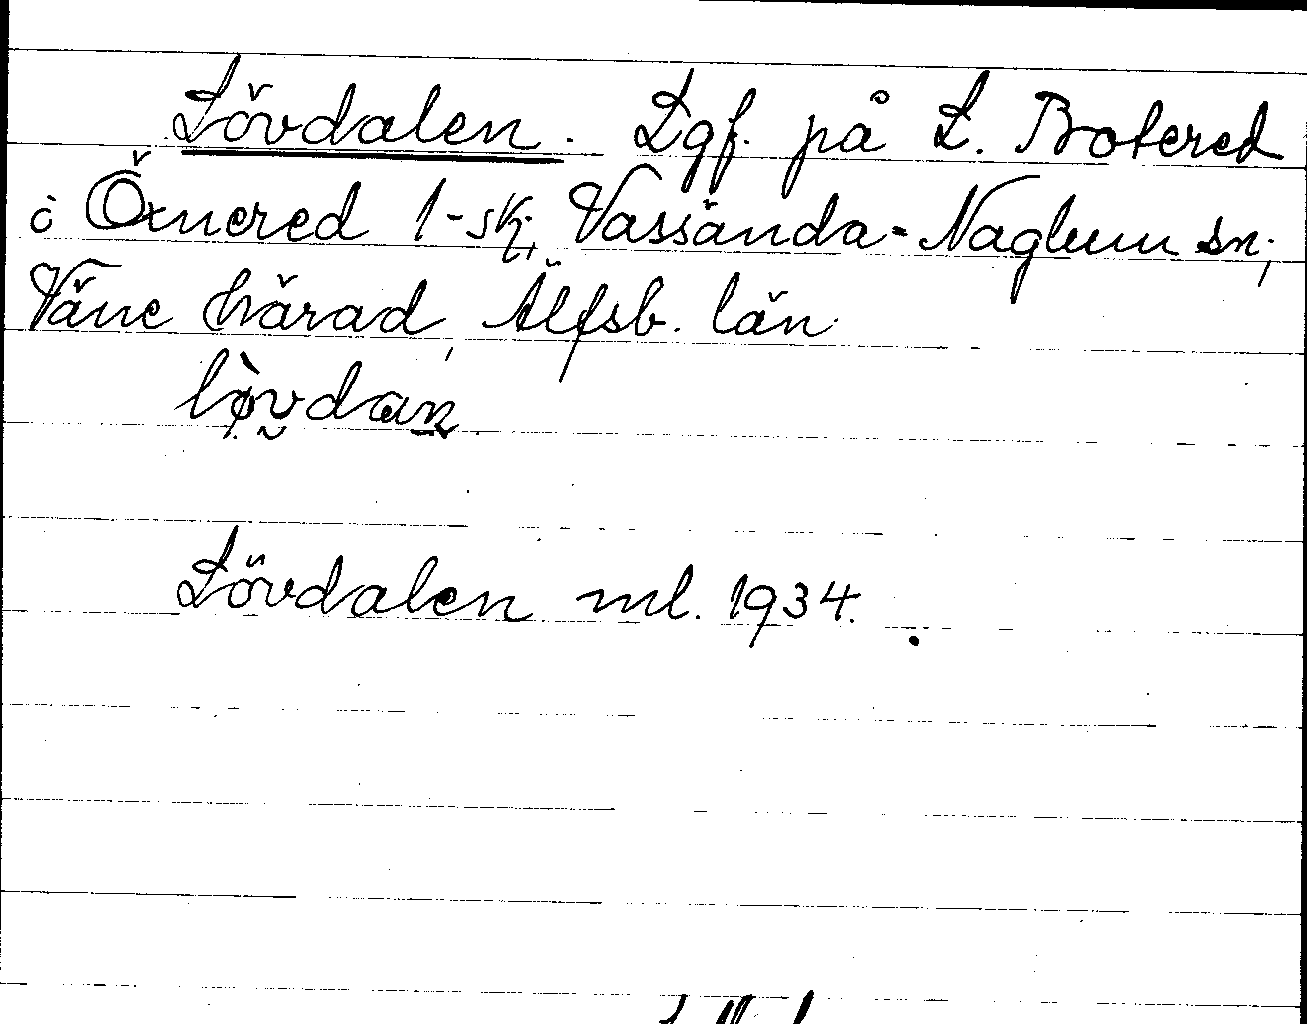 Lövdalen. Lgf. på L. Botered
i Öxnered 1-sk, Vassända-Naglum sn,
Väne härad, Älfsb. län.
Lövdalen ml. 1934.